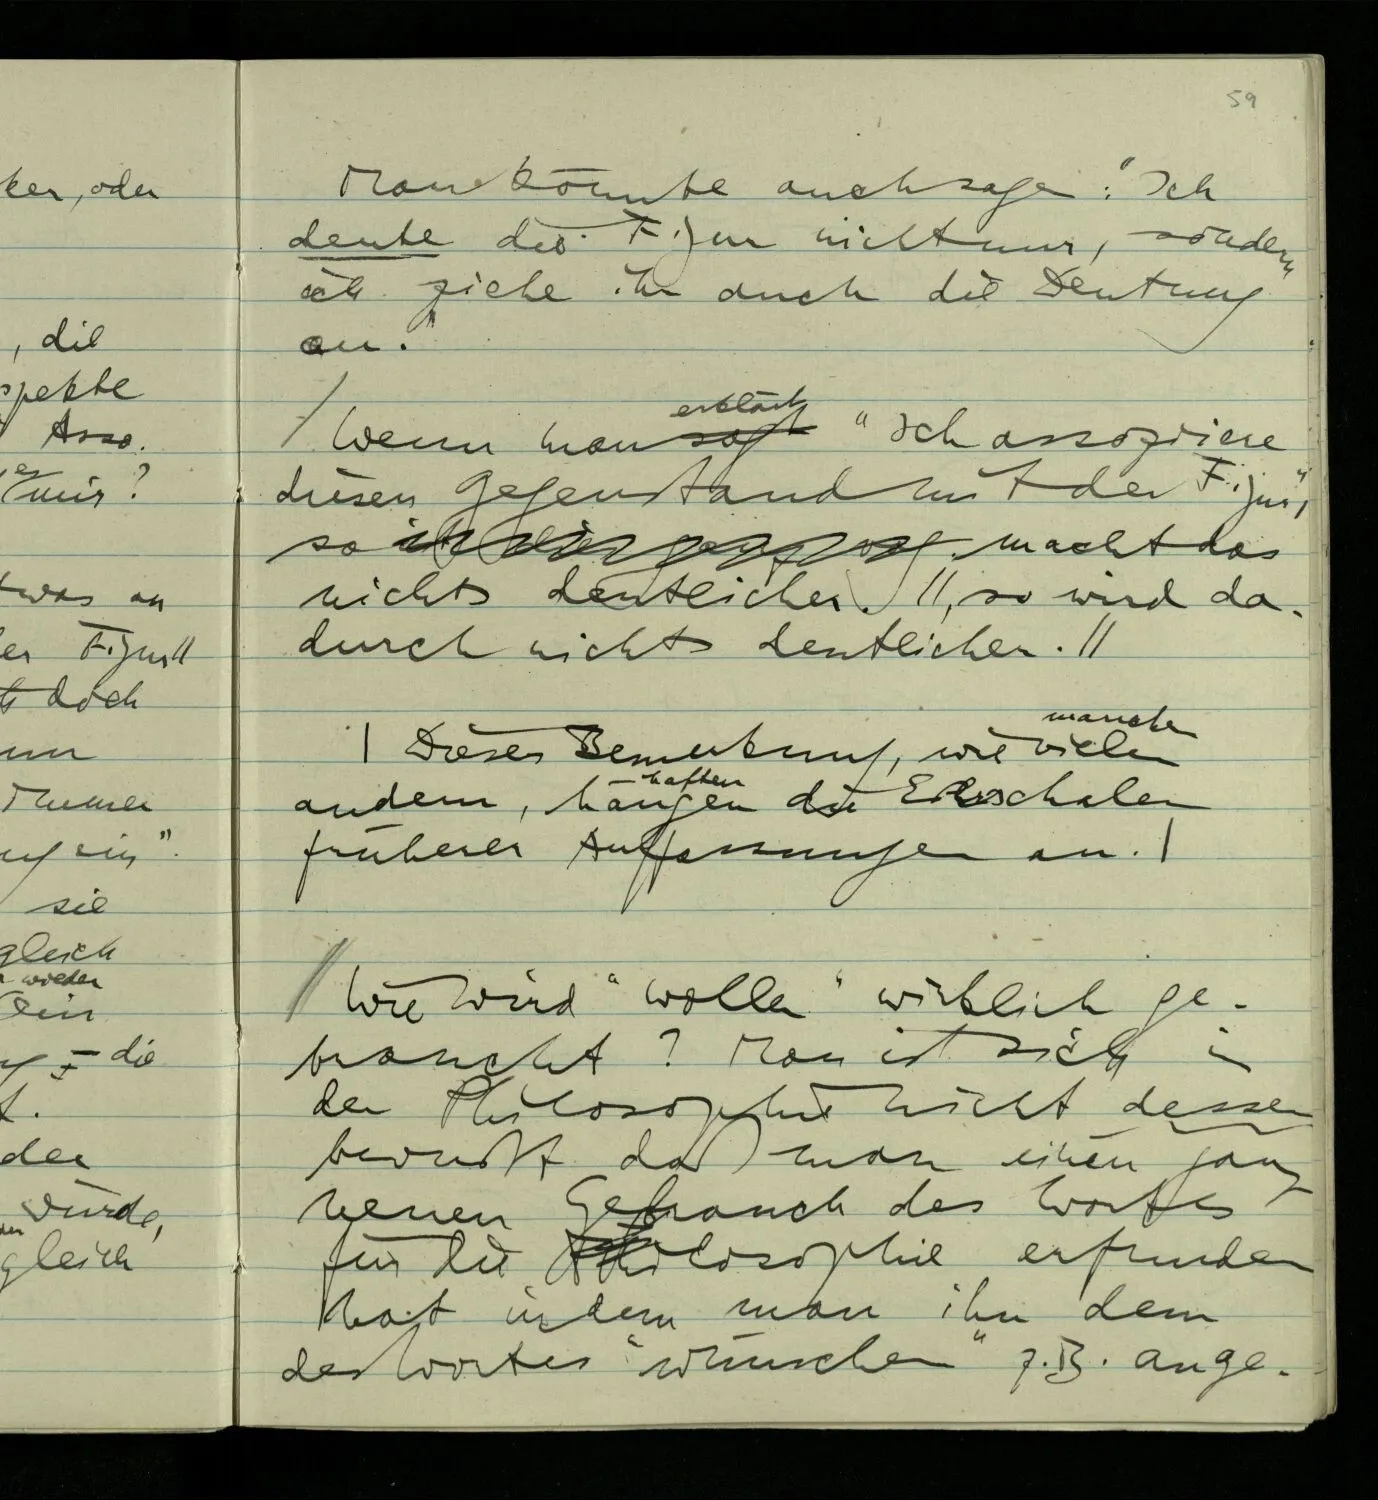 59
ker, oder
, die
spekte
Asso.
mir?
twas an
er Figur//
doch
nn
Nummer
ein".
sie
gleich
wieder
ein
die
t.
der
würde,
gleich
Man könnte auch sagen: "Ich
deute die Figur nicht nur, sondern
ich ziehe ihr auch die Deutung
an."
/ Wenn man sagt erklärt "Ich assoziiere
diesen Gegenstand mit der Figur",
so macht das
nichts deutlicher. //, so wird da-
durch nichts deutlicher. //
| Dieser Bemerkung, wie vielen manchen
andern, hängen haften die Eierschalen
früherer Auffassungen an. |
// Wie wird "wollen" wirklich ge-
braucht? Man ist sich in
der Philosophie nicht dessen
bewußt daß man einen ganz
neuen Gebrauch des Wortes
für die Philosophie erfunden
hat indem man ihn dem
des Wortes "wünschen" z.B. ange-